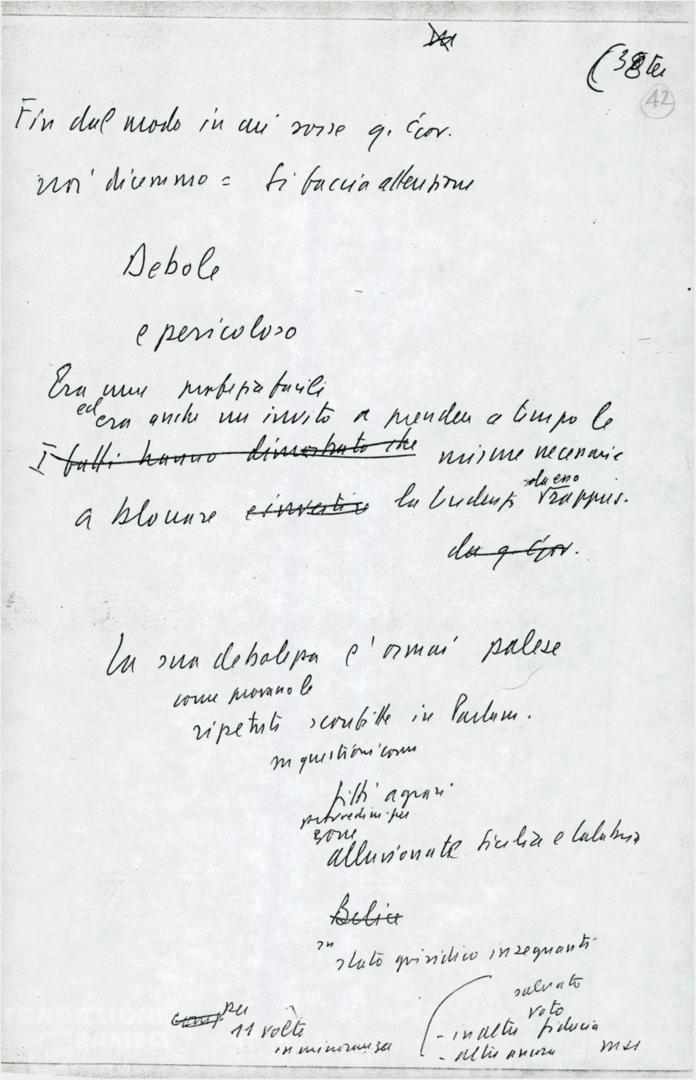 (38 ter
42
Fin dal modo in cui sorse q. Gov.
noi dicemmo = si faccia attenzione
Debole
e pericoloso
Era una profezia facile
ed era anche un invito a prendere a tempo le
I fatti hanno dimostrato che misure necessarie
a bloccare e invertire la tendenza da esso rappres.
da q. Gov.
La sua debolezza è ormai palese
come provano le
ripetute sconfitte in Parlam.
in questioni come
fitti agrari
provvedim. per
zone
alluvionate Sicilia e Calabria
Belice
su
stato giuridico insegnanti
per
11 volte
in minoranza
salvato
voto
- in altre fiducia
- altre ancora MSI